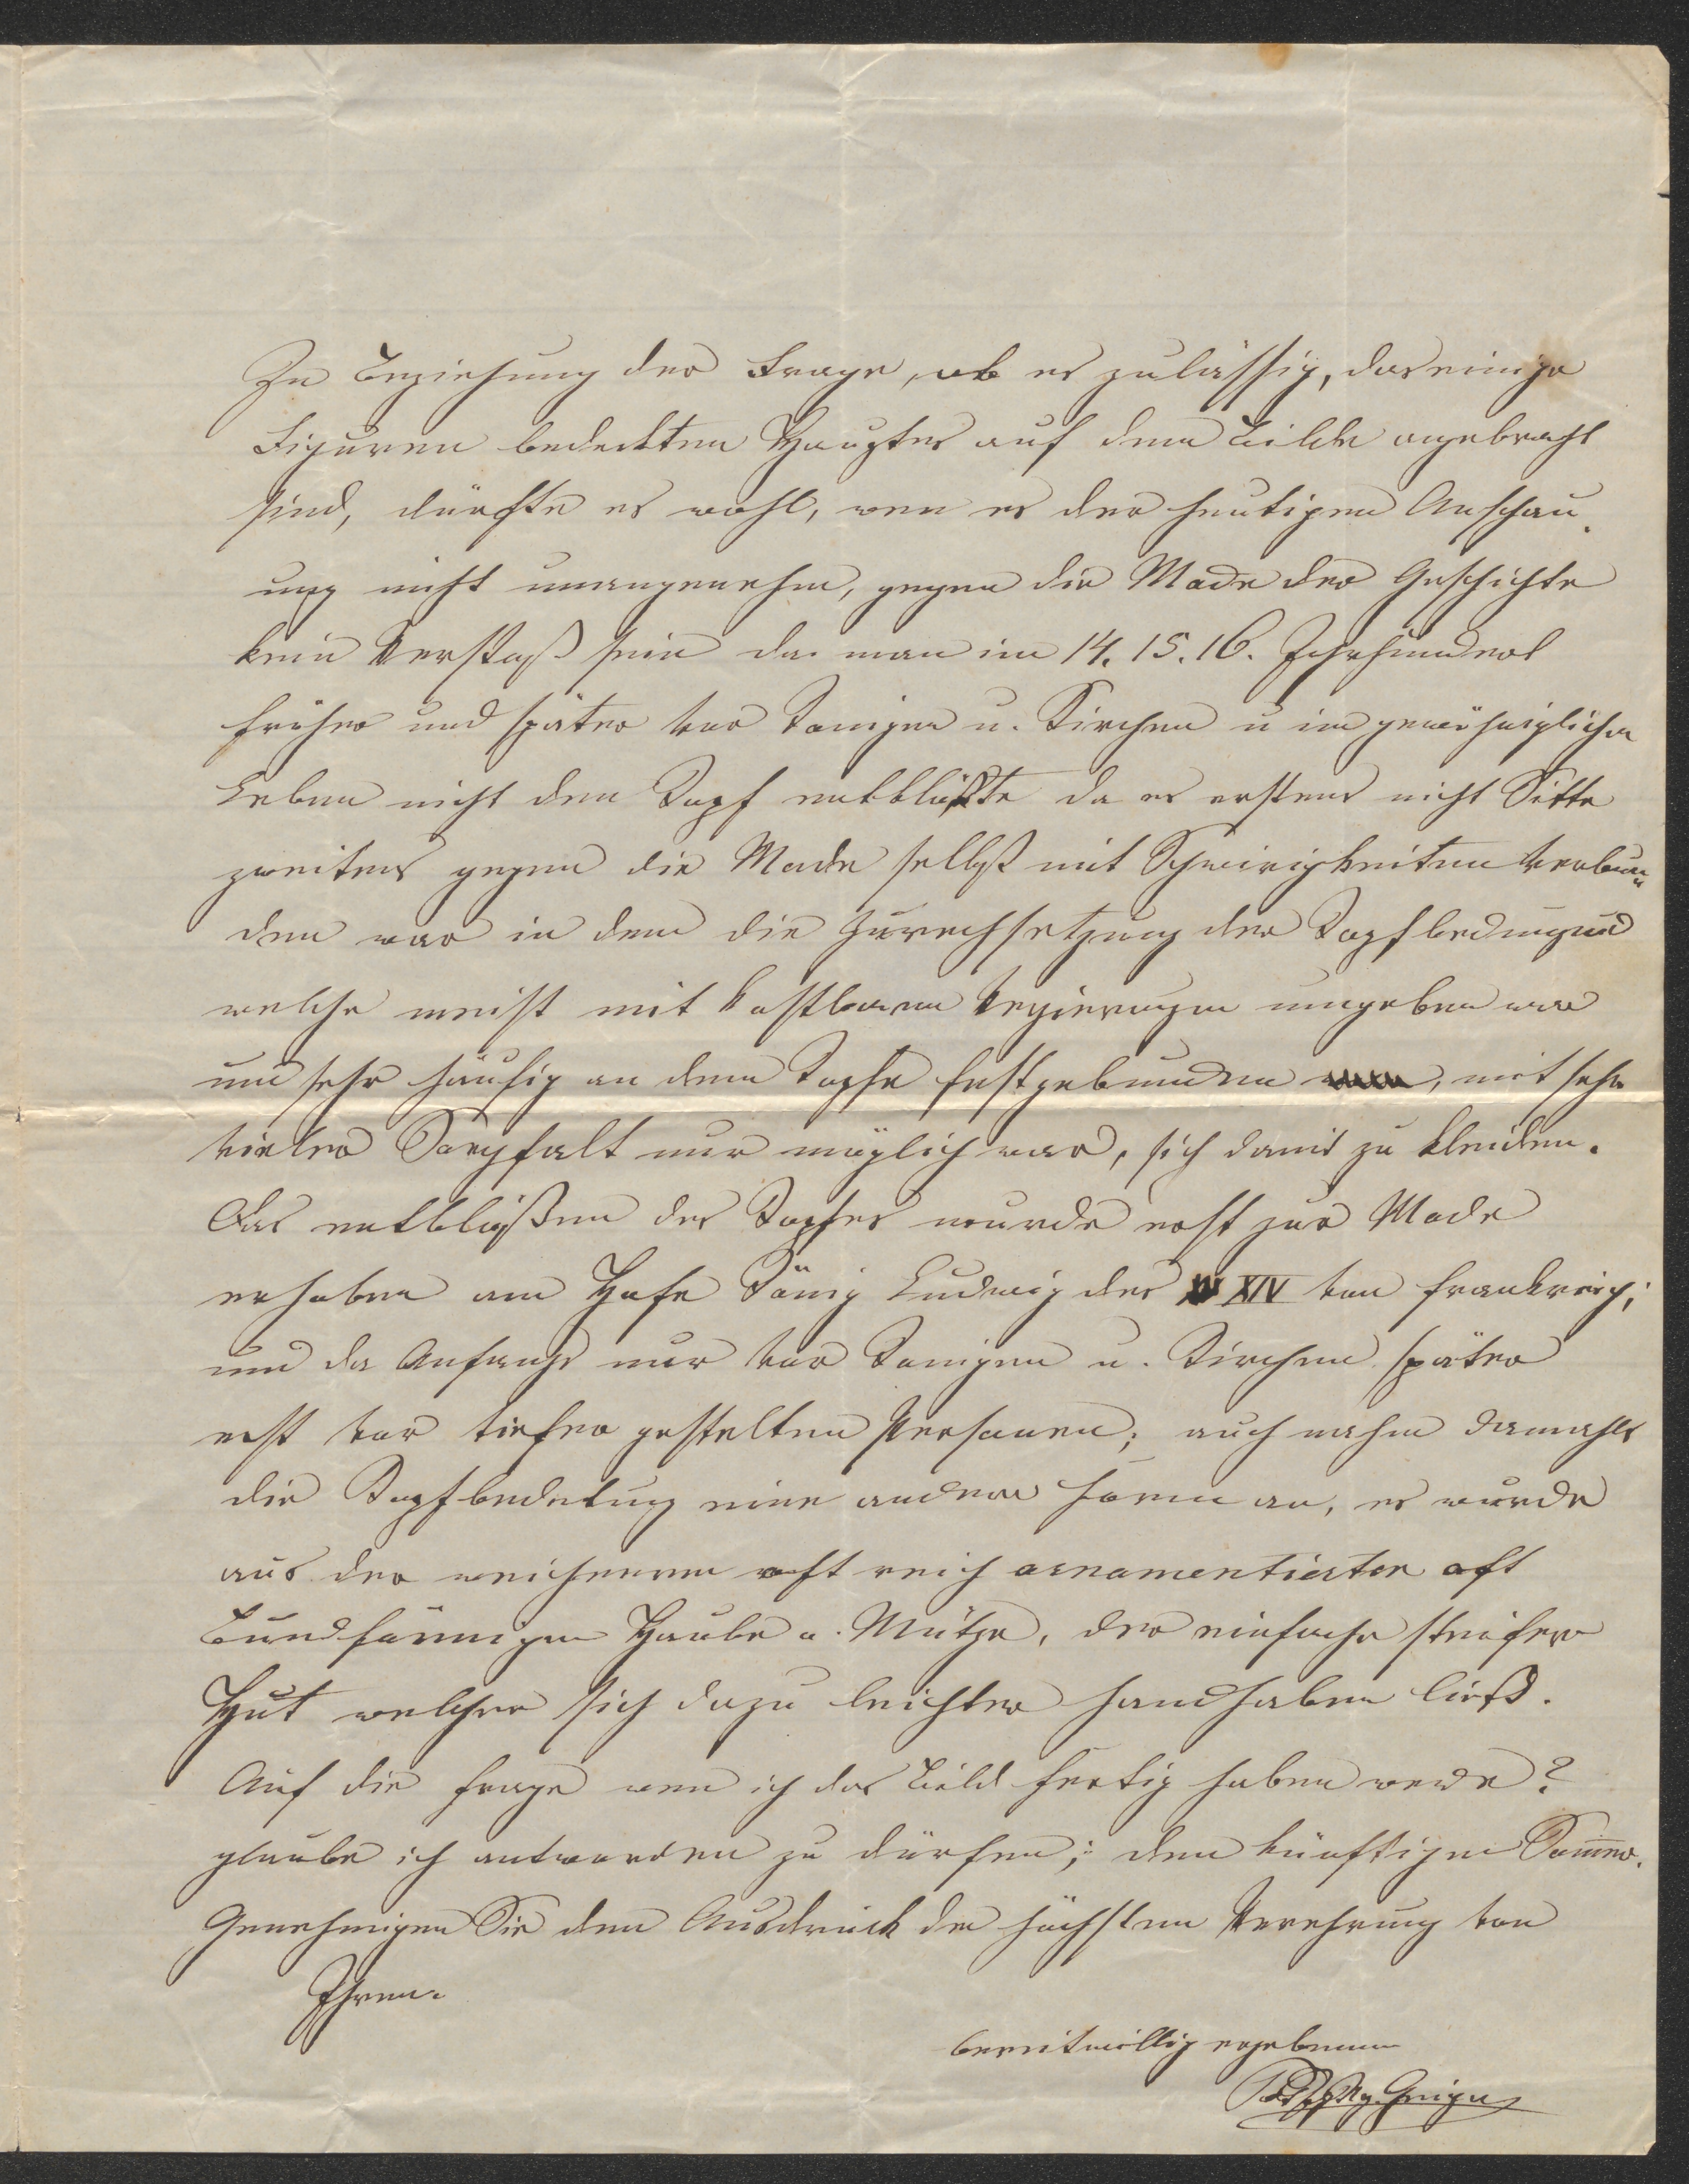 In Beziehung der Frage, ob es zulässig, das einige
Figuren bedeckten Hauptes auf dem Bilde angebracht
sind, dürfte es wohl, wen es der heutigen Anschau-
ung nicht unangenehm, gegen die Mode der Geschichte
kein Verstoß sein da man im 14. 15. 16. Jahrhundert
früher und später vor Königen u. Kirchen u im gewöhniglichen
Leben nicht den Kopf entblößte da es erstens nicht Sitte
zweitens gegen die Mode selbst mit Schwirigkeiten verbun-
den war in dem die Zurechsetzung der
welche meist mit kostbaren umgeben war
und sehr häufig an dem Kopfe festgebunden, mit sehr
vieler Sorgfalt nur möglich war, sich damit zu kleiden.
Das entblößen des Kopfes wurde erst zur Mode
erhoben am Hofe König Ludwig des XIV von Frankreich;
und da Anfangs nur vor Königen u. Kirchen später
erst vor tiefer gestelten Personen; auch nahm damahls
die Kopfbedekung eine andere Form an, es wurde
aus der weicheren oft reich ornamentierter oft
Bundförmigen Haube u. Mütze, der einfache steifere
Hut welcher sich dazu leichter handhaben ließ.
Auf die Frage wen ich das Bild fertig haben werde?
glaube ich antworden zu dürfen; den künftigen Sommer.
Genehmigen Sie den Ausdruck der höchsten Verehrung von
Ihren
bereitwillig ergebenen
Geiger